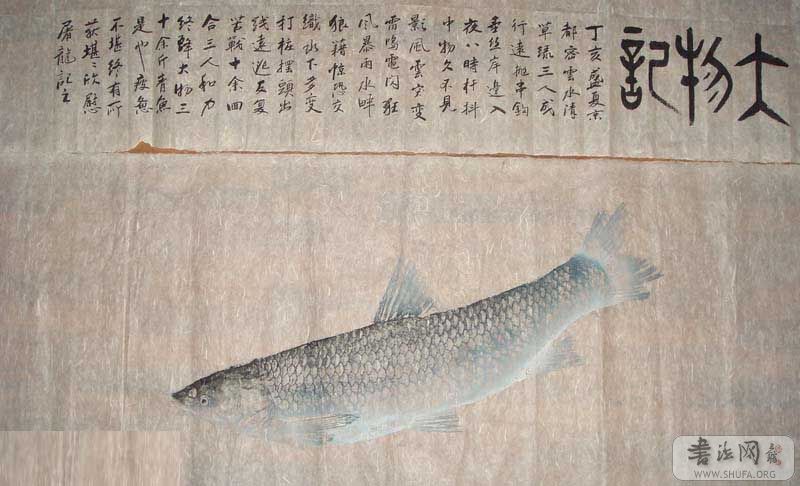 大物記
丁亥盛夏京
都密雲水清
草綠三人或
行遠拋串鉤
垂丝岸邊入
夜八時杆抖
中物久不見
影風雲宇变
雷鳴電闪狂
風暴雨水畔
狼藉惊恐交
織水下多变
打樁擺頭出
线遠逃反复
苦戰十余回
合三人和力
终大物三
十余斤青魚
是也疲惫
不堪终有所
获堪之欣慰
屠龍記之
書法网
WWW.SHUFA.ORG